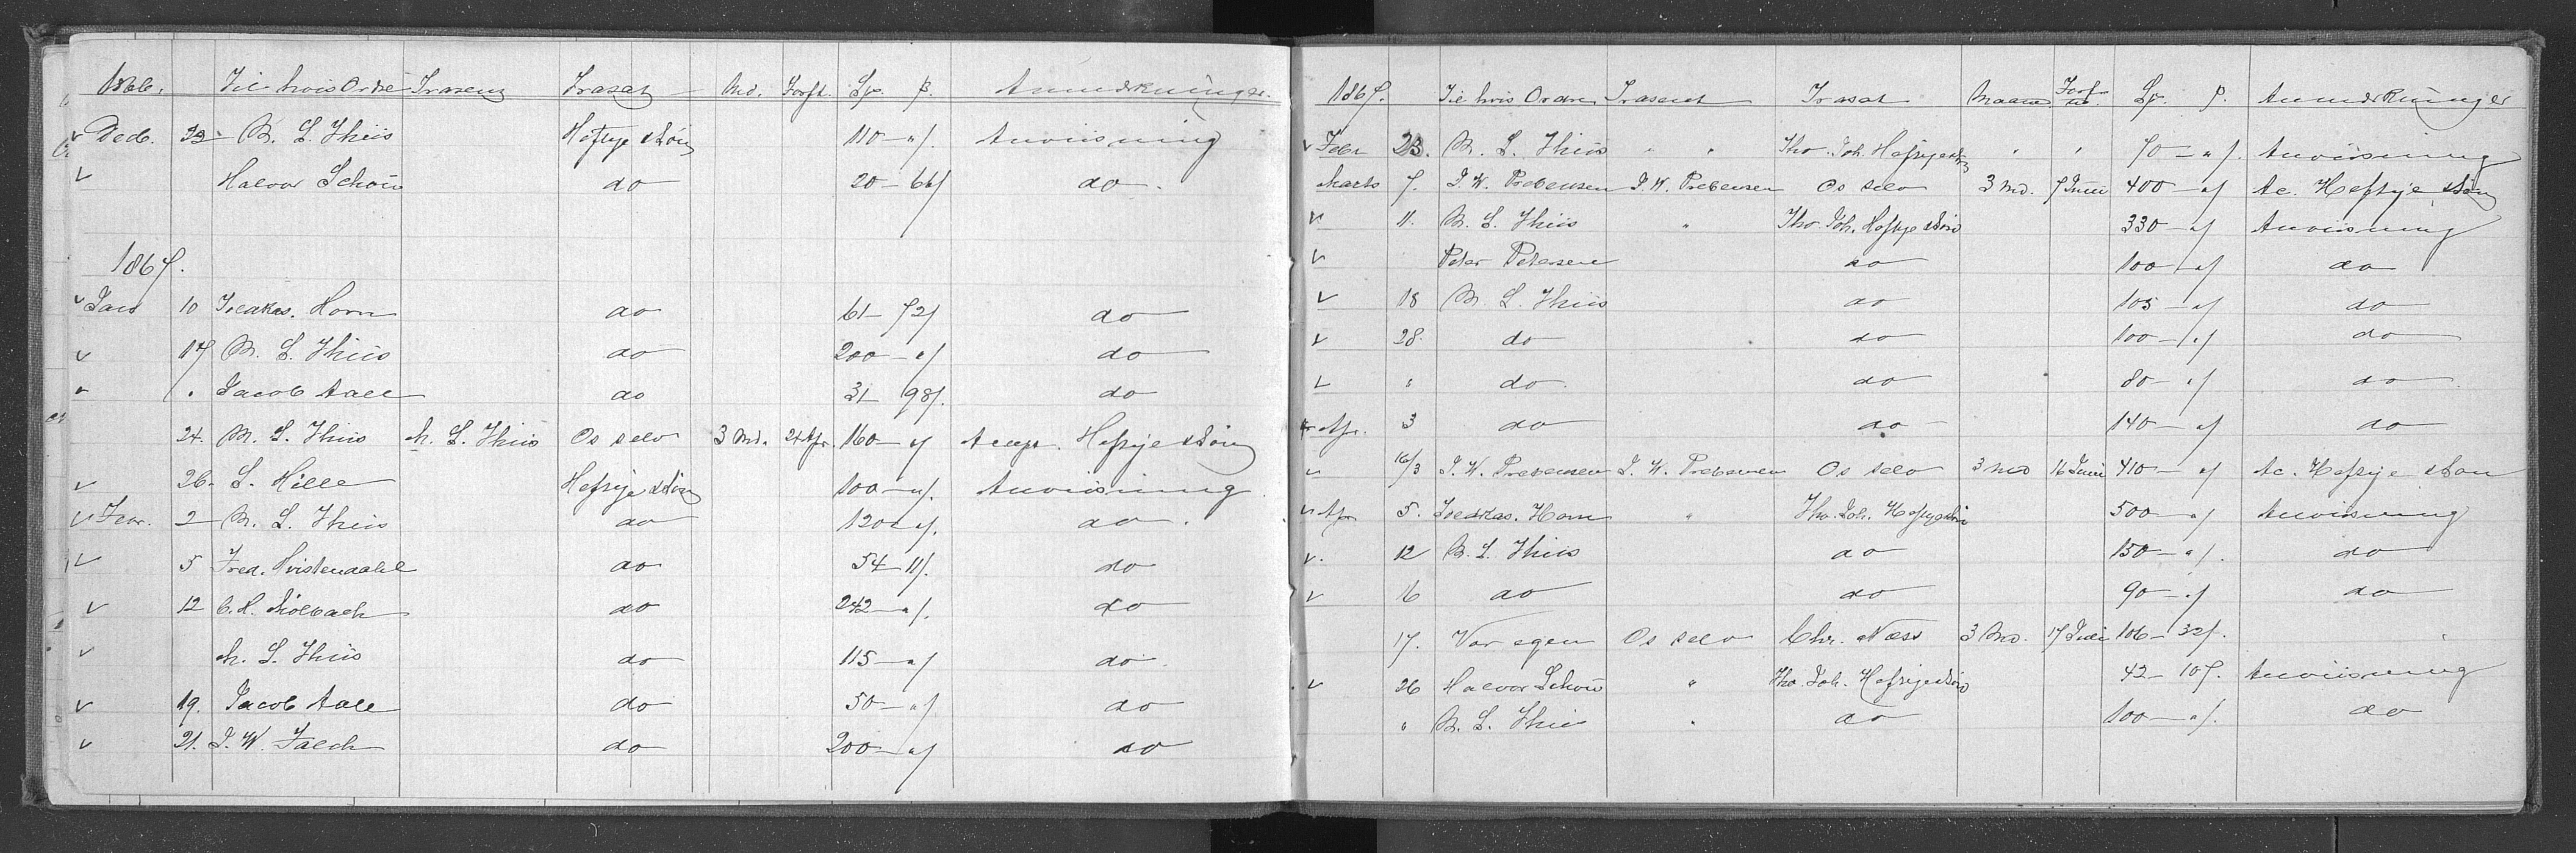 1866. Til hvis Ordre Trassent Trasat Md. Forft. Sp. ß. Anmærkninger.
✓ Decb. 22 M. L. Thiis Heftye & Søn 110 – " / Anviisning
✓ Halvor Schou do 20 – 66/ do.
1867.
✓ Jan 10 Toldkas. Horn do 61 – 72/ do
✓ 17 M. L. Thiis do 200 – " / do
" Jacob Aall do 31 98/. do
24. M. L. Thiis M. L. Thiis Os selv 3 Md. 24 Apr. 160 – " / Accept. Heftye & Søn
✓ 26. S. Hille Heftye & Søn 100 – " /. Anviisning.
✓ Febr. 2 M. L. Thiis do 120 – " /. do.
✓ 5 Fred. Hvistendahl do 54 – 11/. do
✓ 12 C. H. Molbach do 242 – " /. do
✓ M. L. Thiis do 115 – " / do.
✓ 19. Jacob Aall do 50 – " / do
✓ 21. J. W. Falch do 200 – " / do
1867. Til hvis Ordre Trasent Trasat Maaned Sp. ß. Anmærkninger
✓ Febr 23. M. L. Thiis " " Tho. Joh. Heftye & Søn " " 70 – " /. Anviisning
Marts 7. J. W. Prebensen J. W. Prebensen Os selv 3 Md. 7 Juni 400 – " / Ac. Heftye & Søn
✓ 11. M. L. Thiis " Tho. Joh. Heftye & Søn 330 – " / Anviisning
✓ Peter Petersen do 100 – " / do
✓ 18 M. L. Thiis do 105 – " / do
✓ 28. do do 100 – " / do
✓ " do. do 80 – " / do.
✓ Apr. 3 do do 140 – " / do
✓ 16/3 J. W. Prebensen J. W. Prebensen Os selv 3 Md 16 Juni 410 – " / Ac. Heftye & Søn
✓ Apr 5. Toldkas. Horn " Tho. Joh. Heftye & Søn 500 – " / Anviisning
✓. 12 M. L. Thiis do 150 – " /. do
✓ 16 do do 90 – " / do
17. Vor egen Os selv Chr. Næss 3 Md. 17 Juli 106 – 32/.
✓ 26 Halvor Schou " Tho. Joh. Heftye & Søn 42 – 107. Anviisning
" M. L. Thiis " do 100 – " /. do